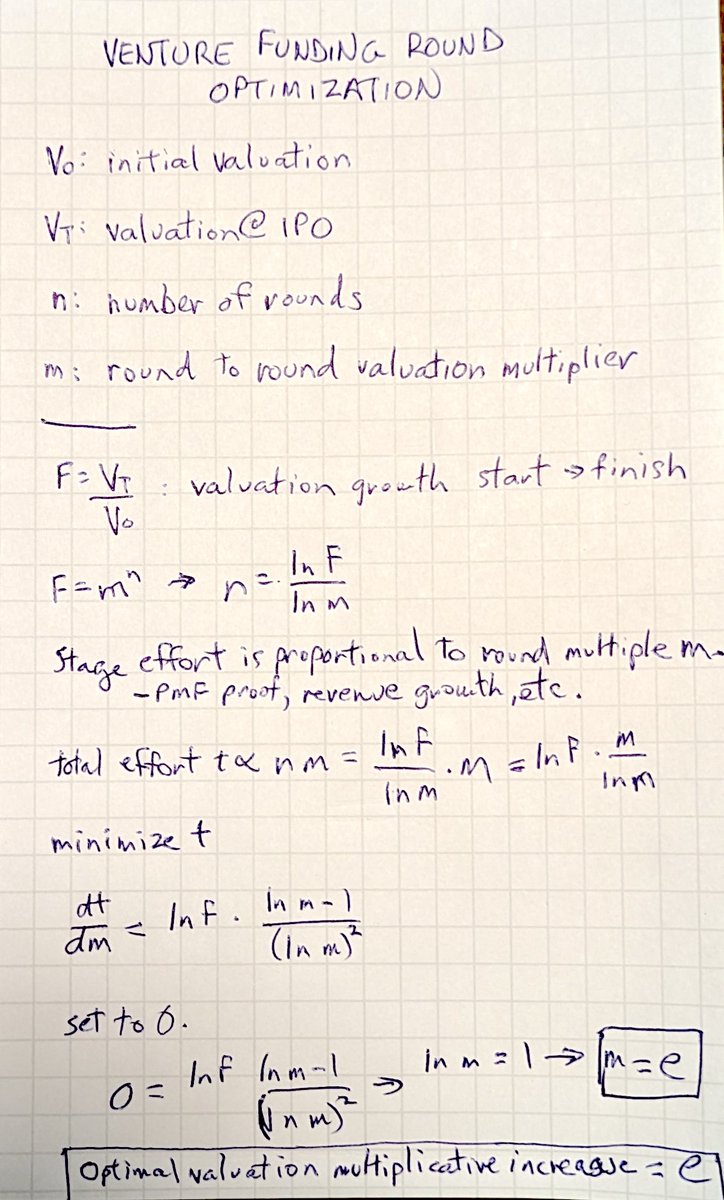 VENTURE FUNDING ROUND
OPTIMIZATION
V₀: initial valuation
V_T: valuation @ IPO
n: number of rounds
m: round to round valuation multiplier
F = V_T/V₀ : valuation growth start → finish
F = mⁿ → n = ln F/ln m
Stage effort is proportional to round multiple m.
- PMF proof, revenue growth, etc.
total effort t ∝ n m = ln F/ln m · m = ln F · m/ln m
minimize t
dt/dm = ln F · (ln m - 1)/(ln m)²
set to 0.
0 = ln F (ln m - 1)/(ln m)² ⇒ ln m = 1 → m = e
Optimal valuation multiplicative increase = e